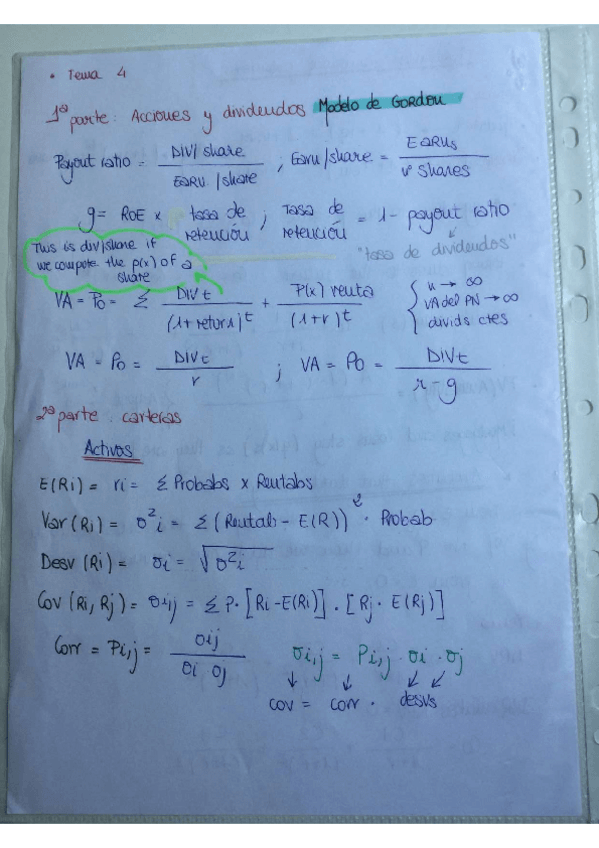 • Tema 4
1ª parte: Acciones y dividendos Modelo de GORDON
Payout ratio = DIV/share / EARN/share ; Earn/share = EARNs / nº shares
g = ROE x tasa de retención ; Tasa de retención = 1 - payout ratio
"tasa de dividendos"
This is div/share if
we compute the p(x) of a
share
VA = P0 = Σ DIVt / (1+return)^t + P(x) renta / (1+r)^t { n → ∞
VA del PN → ∞
divids ctes
VA = P0 = DIVt / r ; VA = P0 = DIVt / r - g
2ª parte: carteras
Activos
E(Ri) = ri = Σ Probabs x Rentabs
Var(Ri) = σ²i = Σ (Rentab - E(R))² · Probab
Desv (Ri) = σi = √σ²i
Cov (Ri, Rj) = σi,j = Σ P · [Ri - E(Ri)] · [Rj · E(Rj)]
Corr = Pi,j = σij / σi σj
σi,j = Pi,j · σi · σj
↓ ↓ ↙ ↙
cov = corr · desvs